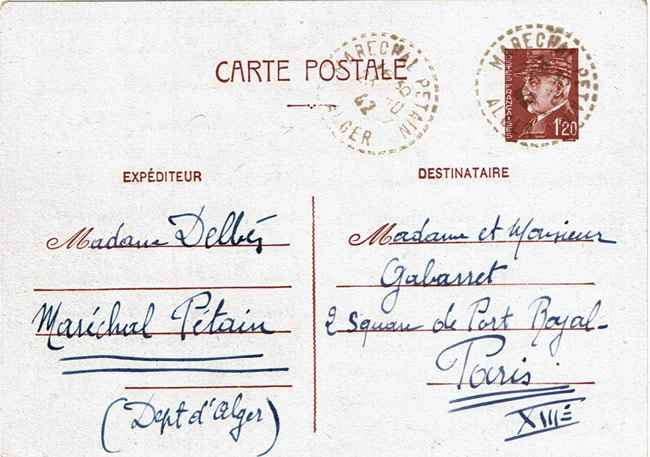 CARTE POSTALE
MARECHAL PETAIN
30
10
42
ALGER
MARECHAL PETAIN
ALGER
POSTES FRANÇAISES
1F20
EXPÉDITEUR
Madame Delbés
Maréchal Pétain
(Dept d'Alger)
DESTINATAIRE
Madame et Monsieur
Gabarret
2 Square de Port Royal-
Paris
XIIIÉ